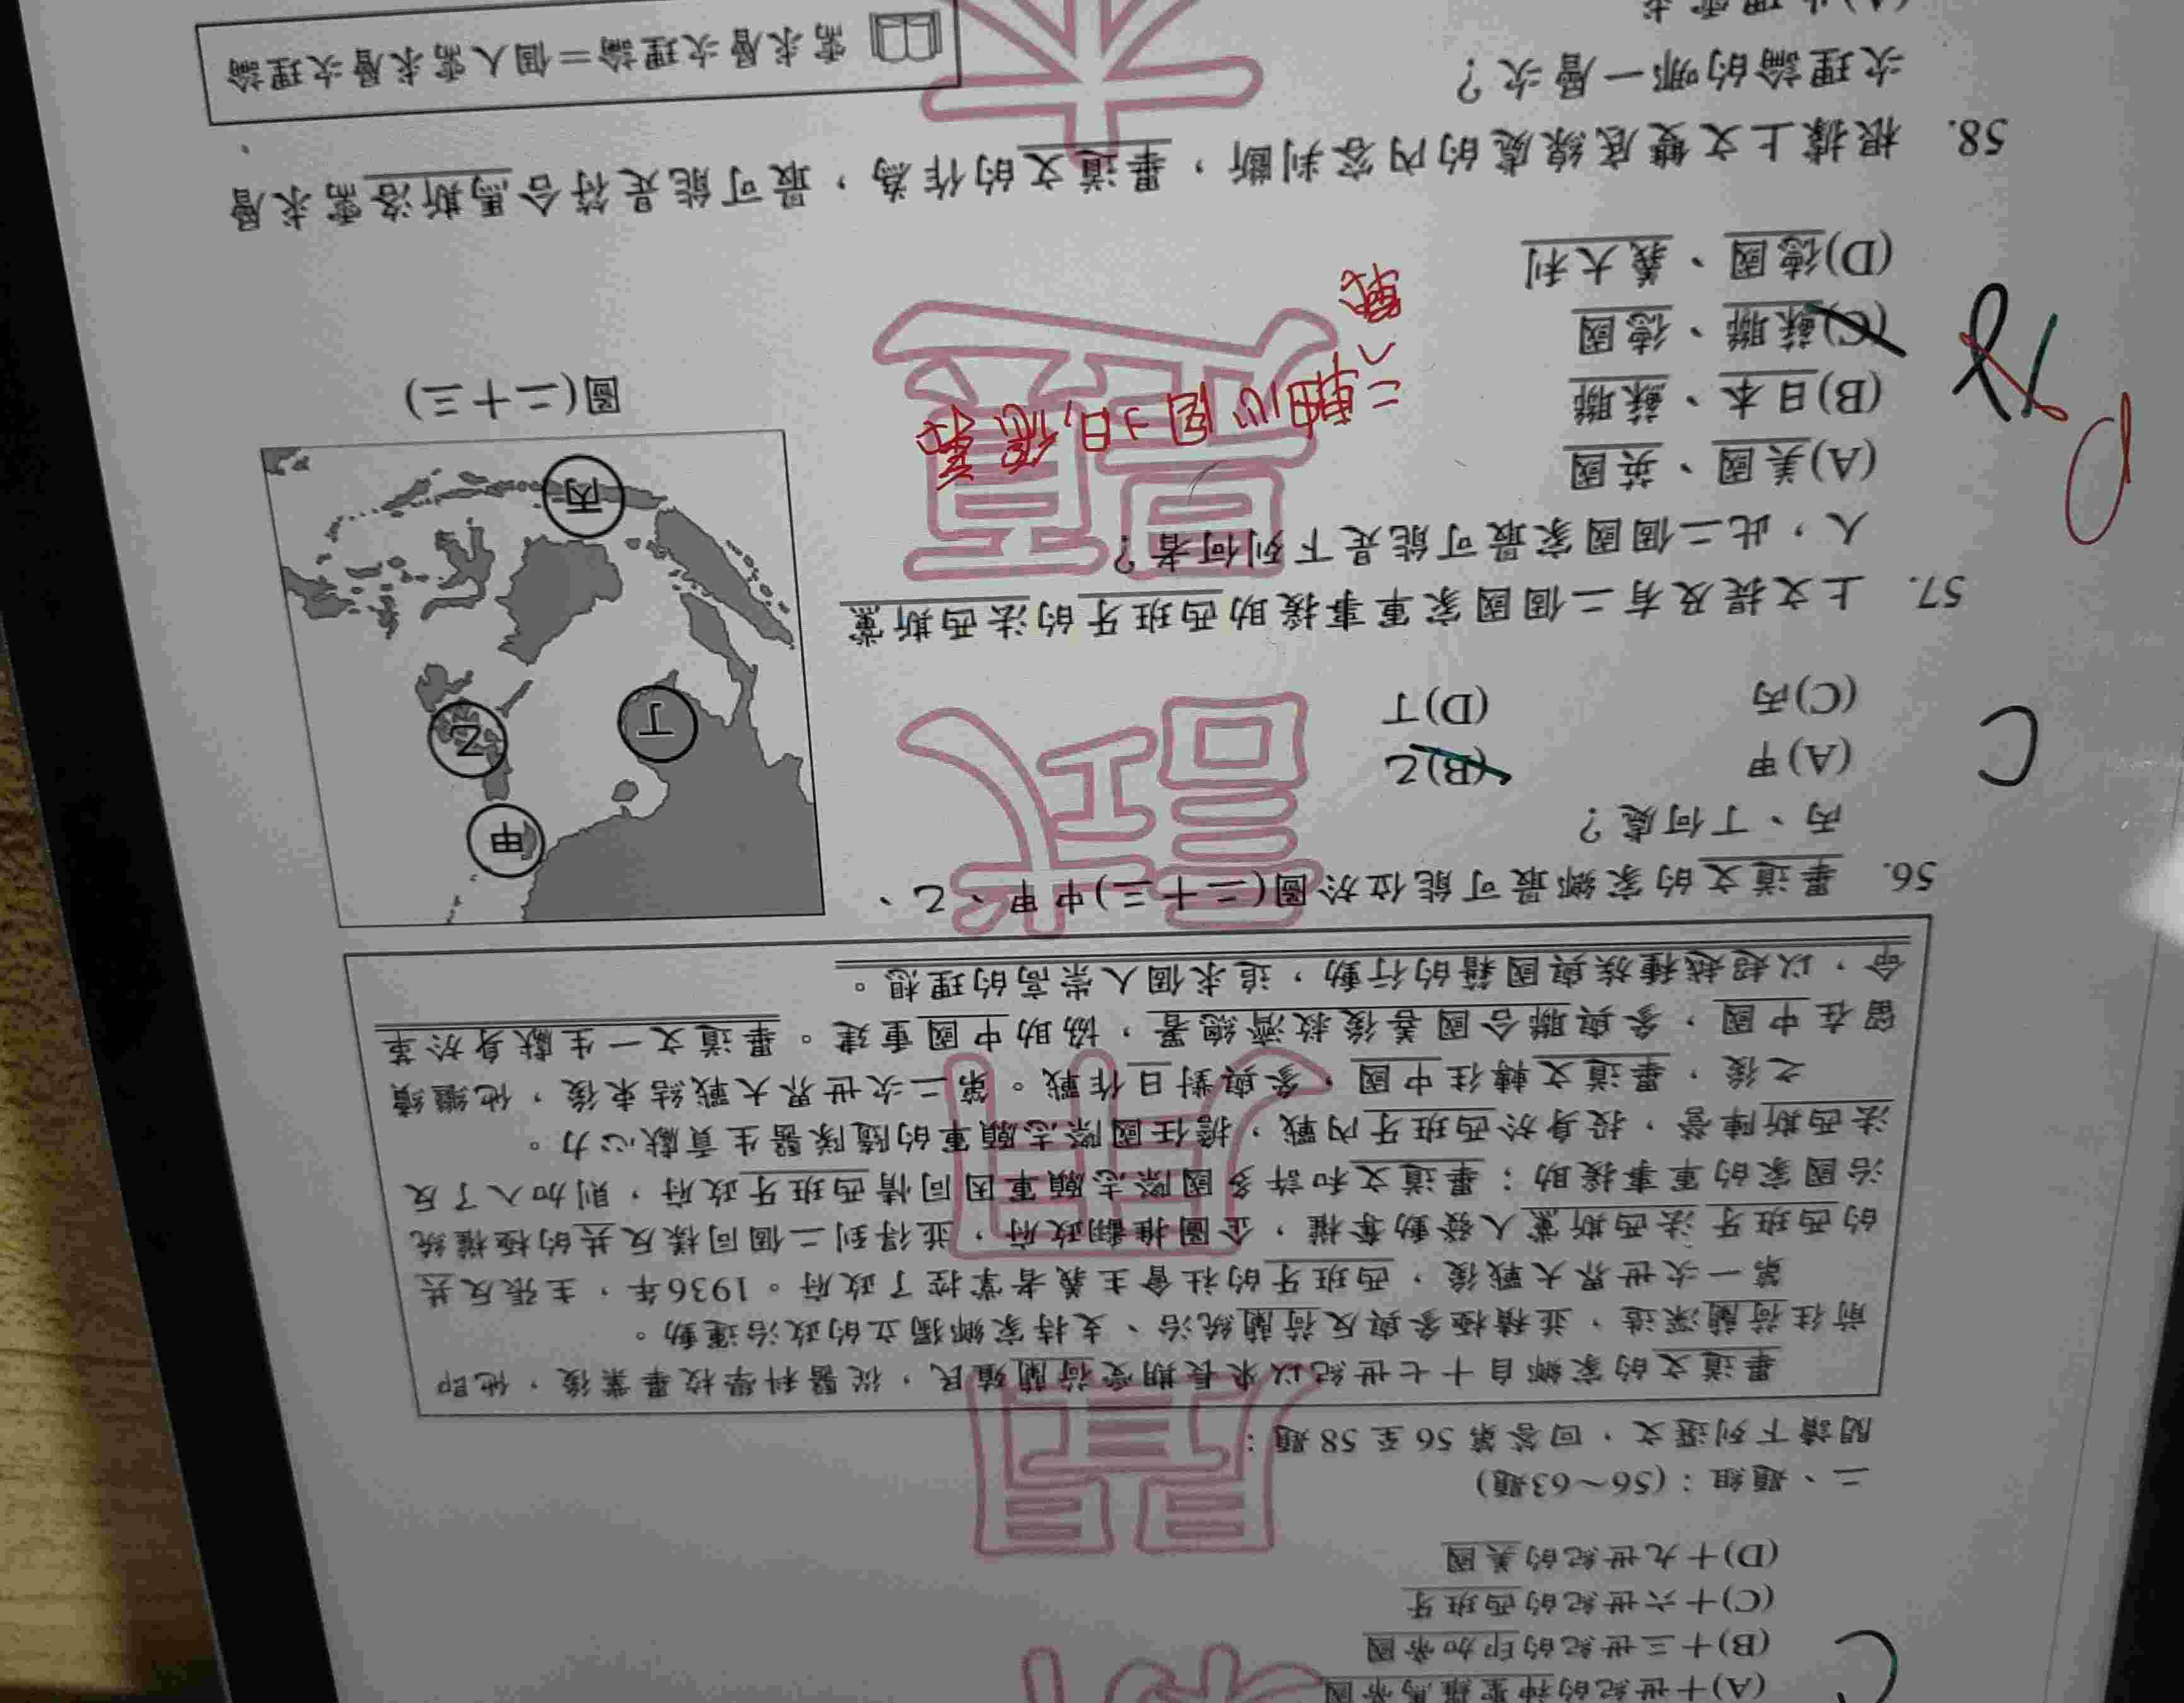 (A)十世紀的神聖羅馬帝國
(B)十三世紀的印加帝國
(C)十六世紀的西班牙
(D)十九世紀的美國
C
二、題組：(56～63題)
閱讀下列選文，回答第 56 至 58 題：
畢道文的家鄉自十七世紀以來長期受荷蘭殖民，從醫科學校畢業後，他即
前往荷蘭深造，並積極參與反荷蘭統治、支持家鄉獨立的政治運動。
第一次世界大戰後，西班牙的社會主義者掌控了政府。1936年，主張反共
的西班牙法西斯黨人發動奪權，企圖推翻政府，並得到二個同樣反共的極權統
治國家的軍事援助；畢道文和許多國際志願軍因同情西班牙政府，則加入了反
法西斯陣營，投身於西班牙內戰，擔任國際志願軍的隨隊醫生貢獻心力。
之後，畢道文轉往中國，參與對日作戰。第二次世界大戰結束後，他繼續
留在中國，參與聯合國善後救濟總署，協助中國重建。畢道文一生獻身於革
命，以超越種族與國籍的行動，追求個人崇高的理想。
56. 畢道文的家鄉最可能位於圖(二十三)中甲、乙、
丙、丁何處？
(A)甲
(B)乙
(C)丙
(D)丁
C
甲
乙
丁
丙
圖(二十三)
57. 上文提及有二個國家軍事援助西班牙的法西斯黨
人，此二個國家最可能是下列何者？
(A)美國、英國
(B)日本、蘇聯
(C)蘇聯、德國
(D)德國、義大利
58. 根據上文雙底線處的內容判斷，畢道文的作為，最可能是符合馬斯洛需求層
次理論的哪一層次？
需求層次理論＝個人需求層次理論
(A)生理需求